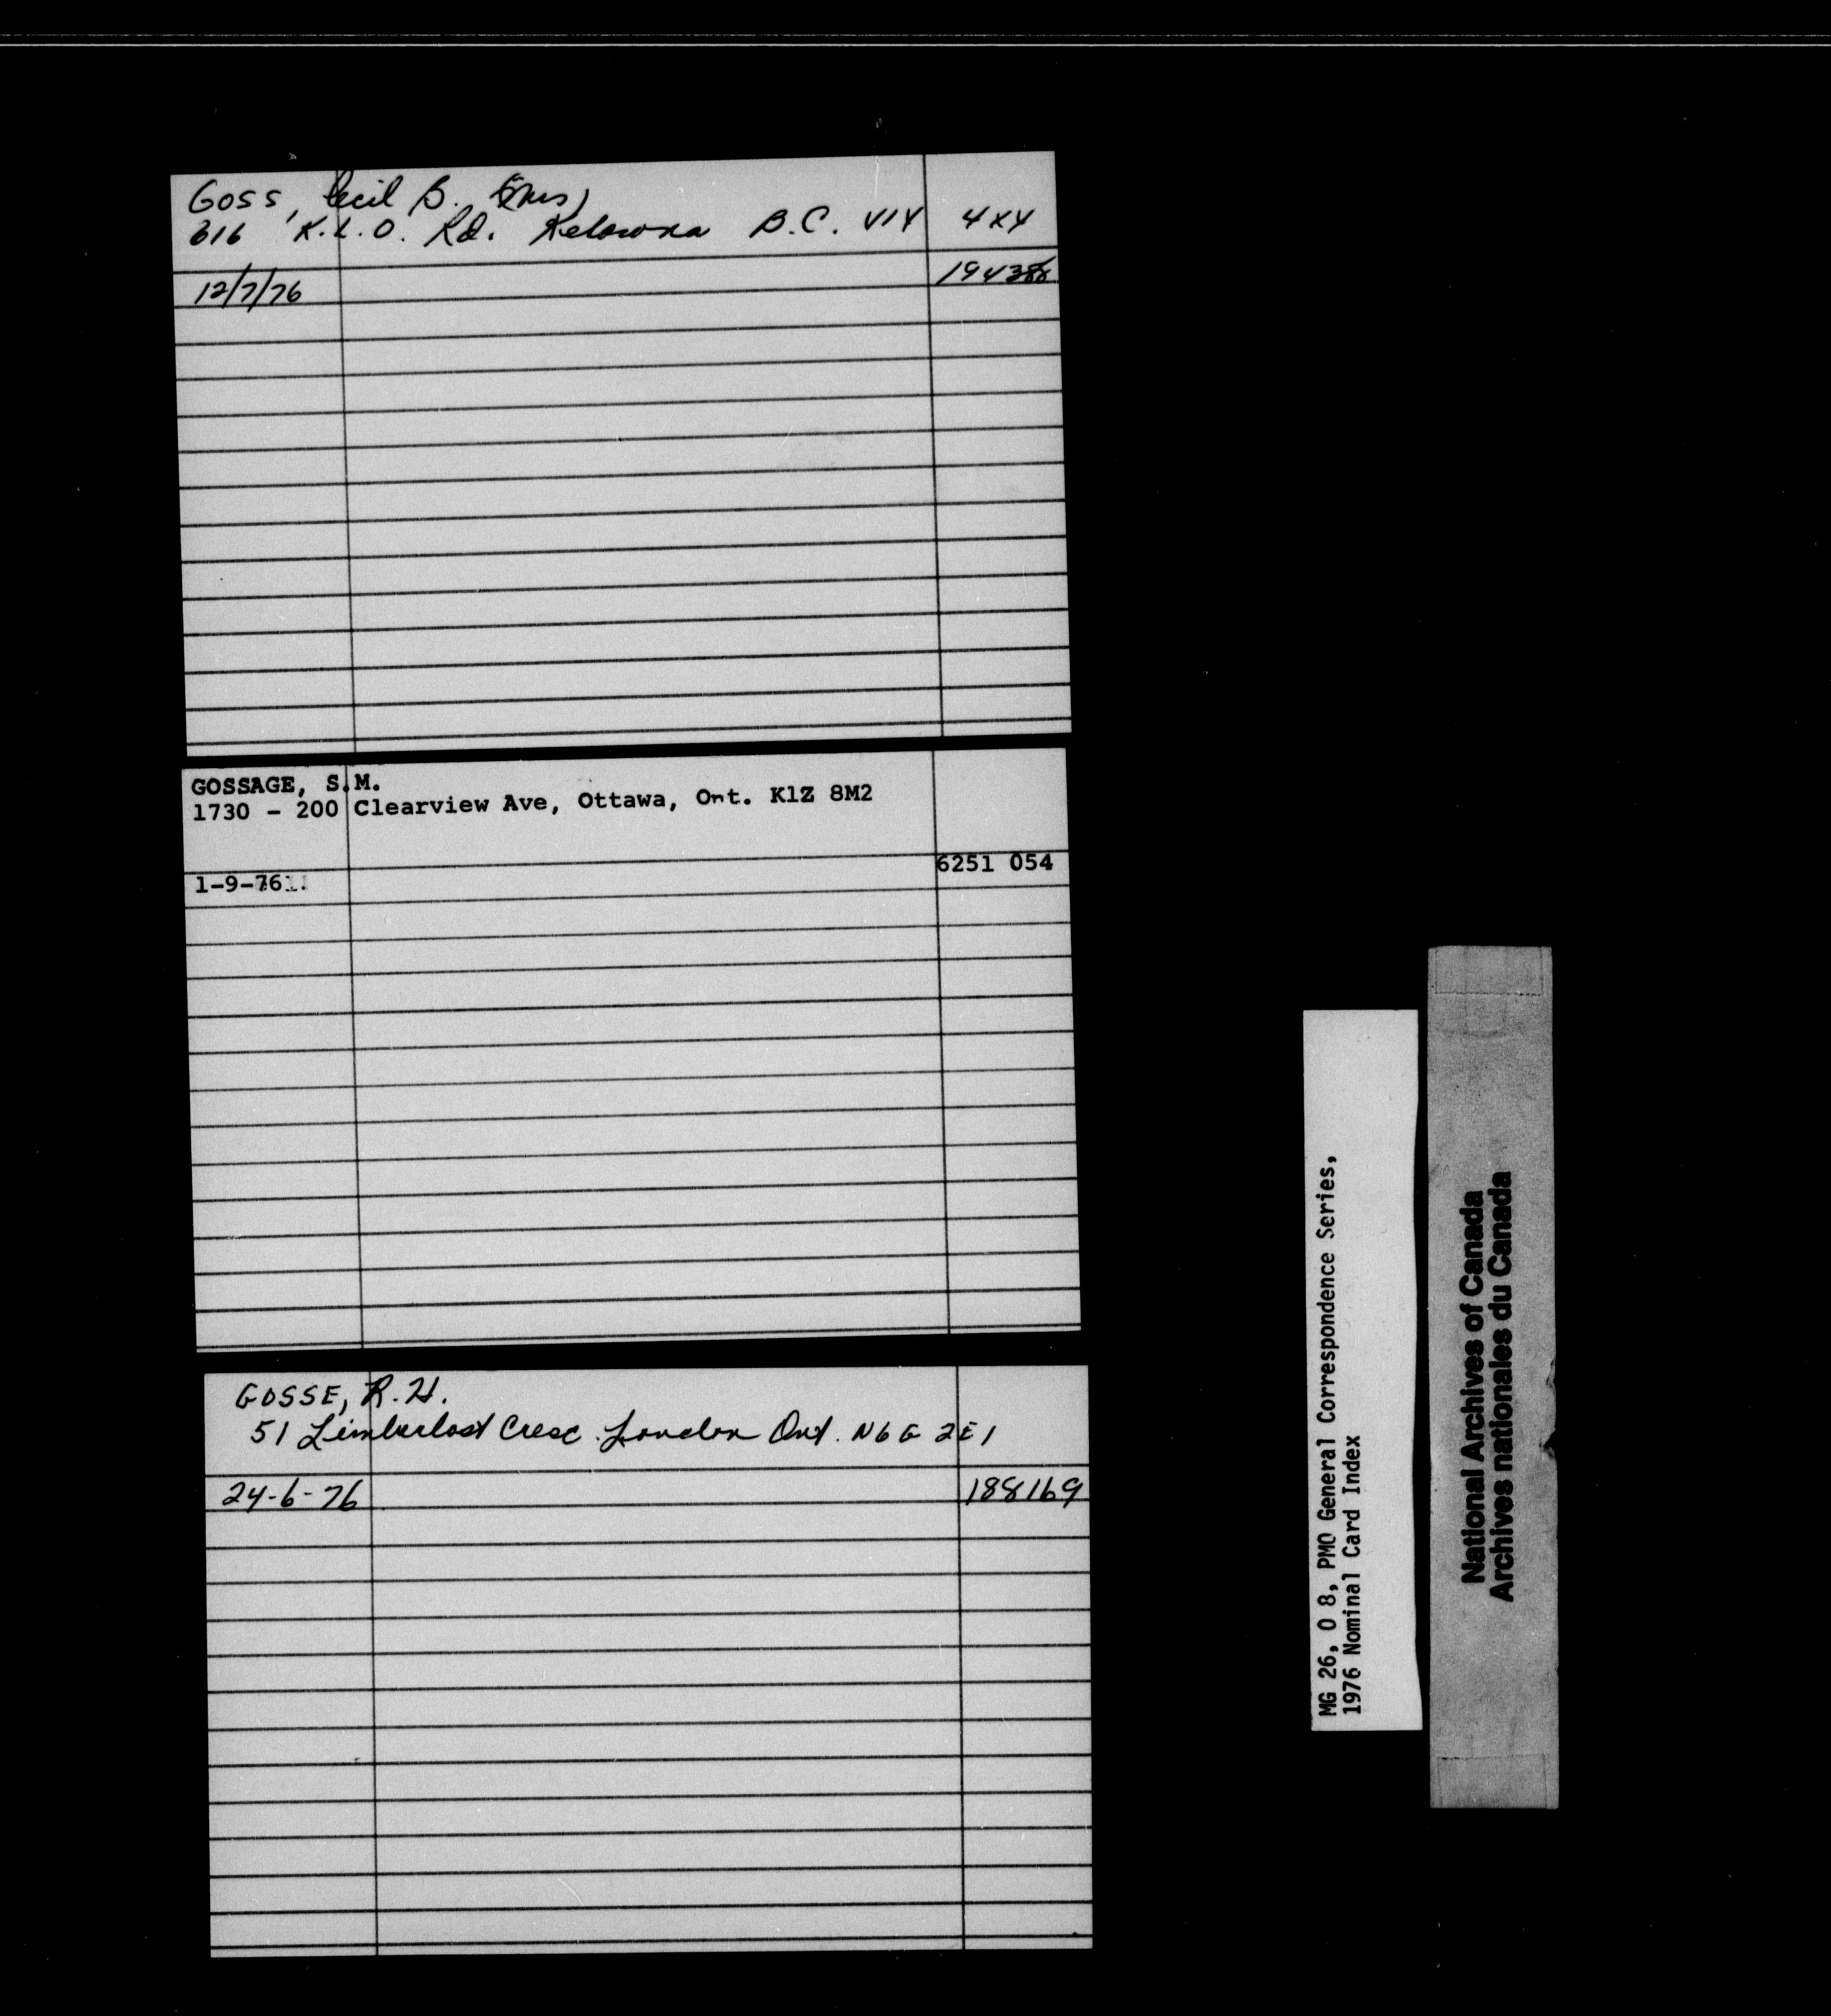 GOSS, Cecil B. (Mrs)
616 K.L.O. Rd. Kelowna B.C. V1Y 4X4
12/7/76 194388
GOSSAGE, S.M.
1730 - 200 Clearview Ave, Ottawa, Ont. K1Z 8M2
1-9-76 6251 054
GOSSE, R.H.
51 Limberlost Cresc. London Ont. N6G 2E1
24-6-76 188169
MG 26, O 8, PMO General Correspondence Series,
1976 Nominal Card Index
National Archives of Canada
Archives nationales du Canada